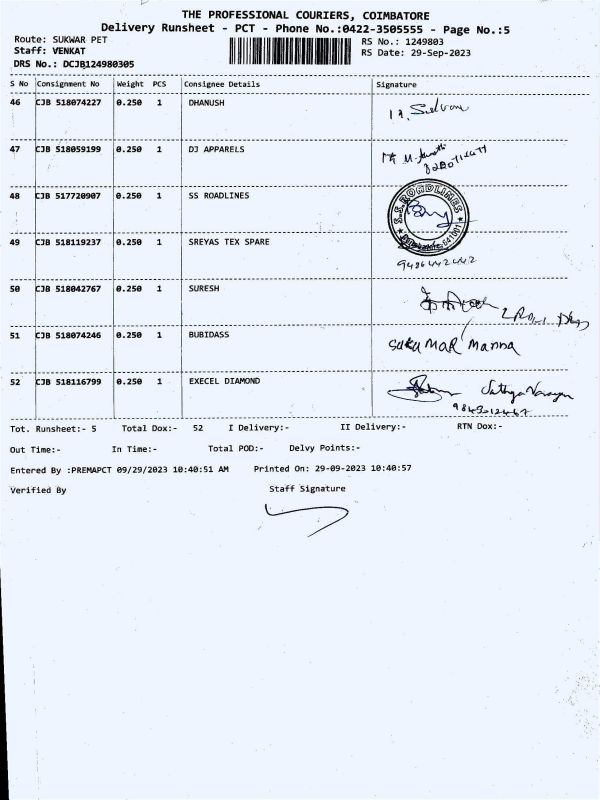 THE PROFESSIONAL COURIERS, COIMBATORE
Delivery Runsheet - PCT - Phone No.:0422-3505555 - Page No.:5
Route: SUKWAR PET RS No.: 1249803
Staff: VENKAT RS Date: 29-Sep-2023
DRS No.: DCJB124980305
S No Consignment No Weight PCS Consignee Details Signature
46 CJB 518074227 0.250 1 DHANUSH
47 CJB 518059199 0.250 1 DJ APPARELS
48 CJB 517720907 0.250 1 SS ROADLINES
S.S.ROADLINES
49 CJB 518119237 0.250 1 SREYAS TEX SPARE
9486442442
50 CJB 518042767 0.250 1 SURESH
51 CJB 518074246 0.250 1 BUBIDASS
SUKUMAR Manna
52 CJB 518116799 0.250 1 EXECEL DIAMOND
Sathya Narayan
Tot. Runsheet:- 5 Total Dox:- 52 I Delivery:- II Delivery:- RTN Dox:-
Out Time:- In Time:- Total POD:- Delvy Points:-
Entered By :PREMAPCT 09/29/2023 10:40:51 AM Printed On: 29-09-2023 10:40:57
Verified By Staff Signature